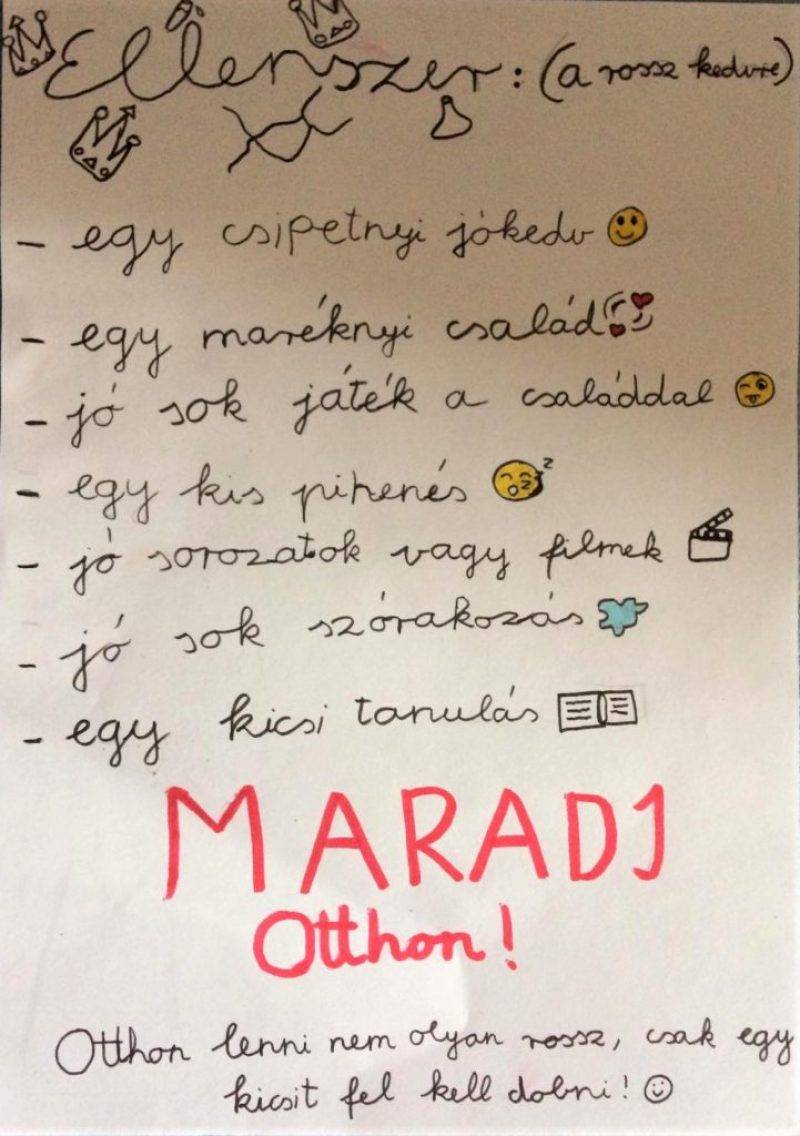 Ellenszer: (a rossz kedvre)
- egy csipetnyi jókedv
- egy maréknyi család
- jó sok játék a családdal
- egy kis pihenés
- jó sorozatok vagy filmek
- jó sok szórakozás
- egy kicsi tanulás
MARADJ
Otthon!
Otthon lenni nem olyan rossz, csak egy
kicsit fel kell dobni!